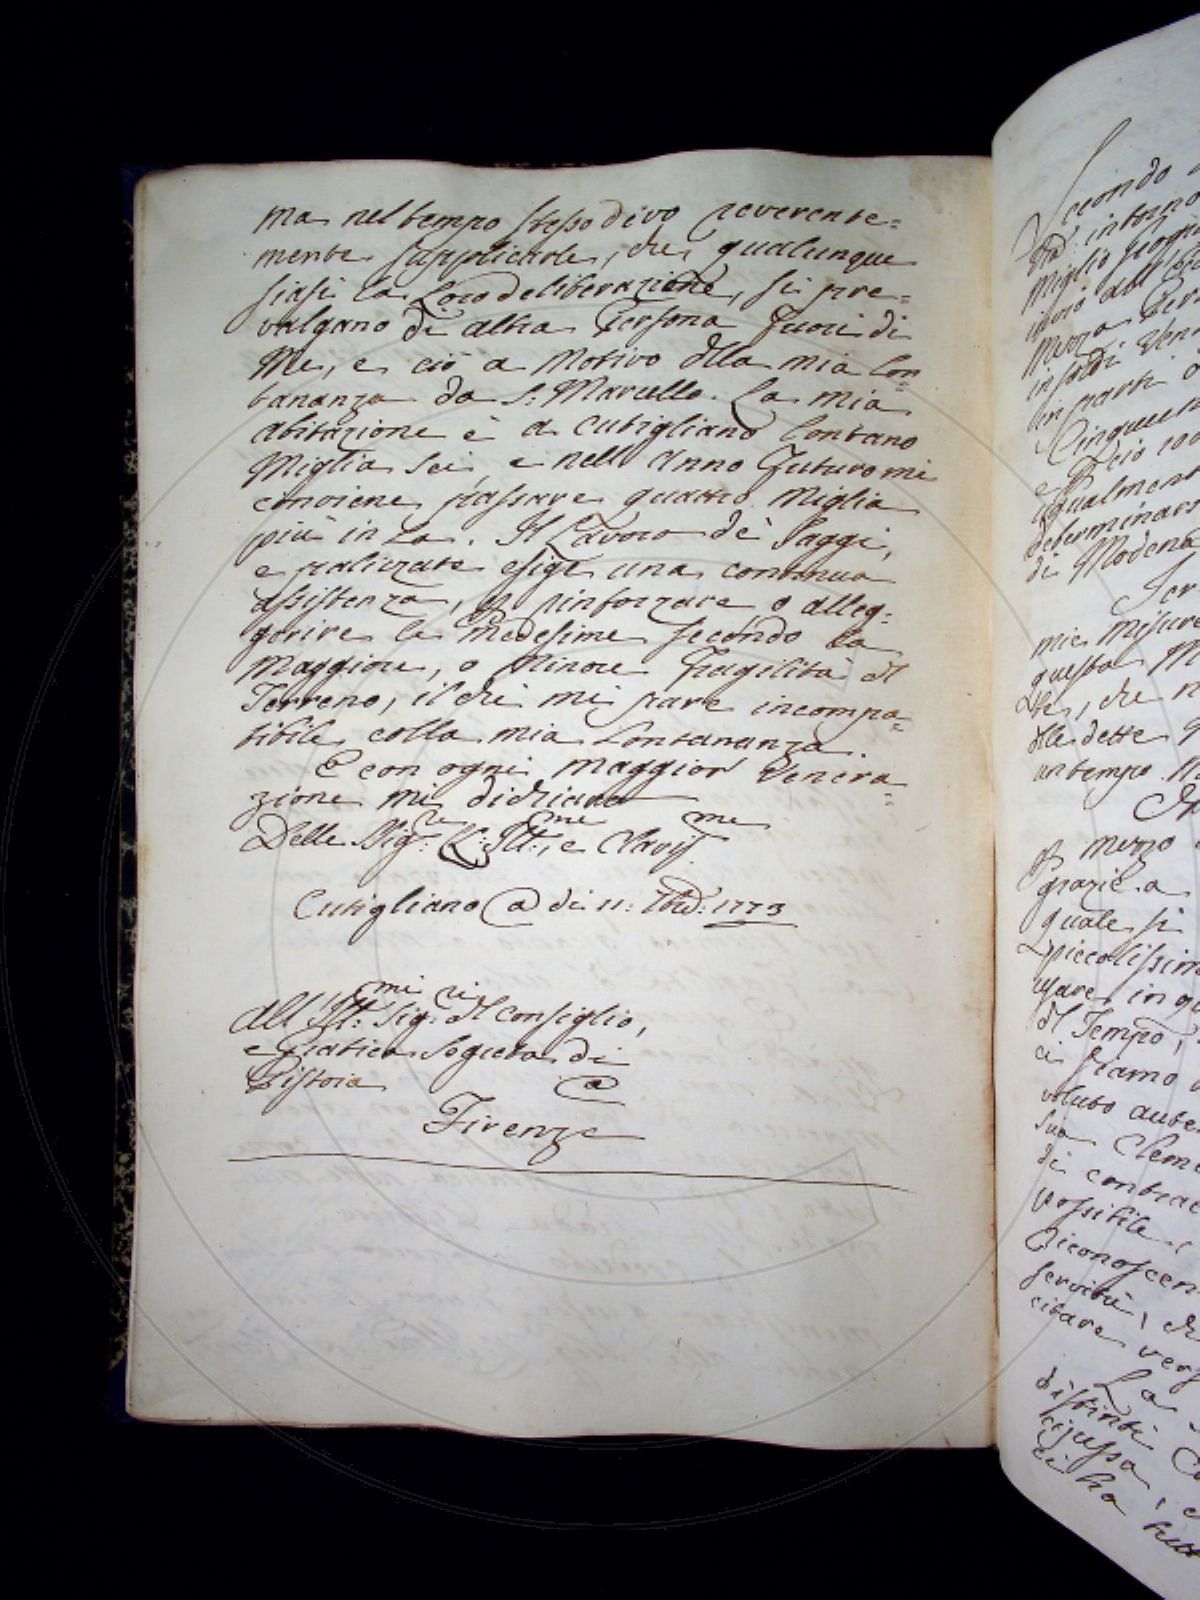 ma nel tempo stesso devo reverente=
mente supplicarle, che qualunque
siasi la Loro deliberazione, si pre=
valgano di altra Persona fuori di
Me, e ciò a Motivo dlla mia lon=
tananza da S: Marcello. La mia
abitazione è a Cutigliano lontano
Miglia Sei, e nell'Anno futuro mi
conviene passare quattro Miglia
più in La. Il Lavoro de' Saggi,
e palizzate esige una continua
assistenza, p rinforzare o alleg=
gerire le Medesime secondo la
Maggiore, o Minore fragilità dl
Terreno, il che mi pare incompa=
tibile colla mia Lontananza.
E con ogni Maggior Venera=
zione mi dichiaro
Delle Sig:rie L: Ill:me, e
Cutigliano @ di 11: 1773
All' Ill:mi Sig:ri dl Consiglio,
e Pratica Segreta di
Pistoia @
Firenze
Secondo
intorno
Miglio
Mezza
in soldi
in parti o
Cinquecen
Ugualmen
determinar
di Modena
mie Misure
questa M
te, che n
dlle dette
un tempo
p mezzo
grazie a
quale si
piccolissim
usare in q
dl Tempo,
ci siamo
voluto aute
sua Cleme
di contrac
possibile,
riconoscen
servitù, ch
citare vers
La
distinti
ci ha tutt